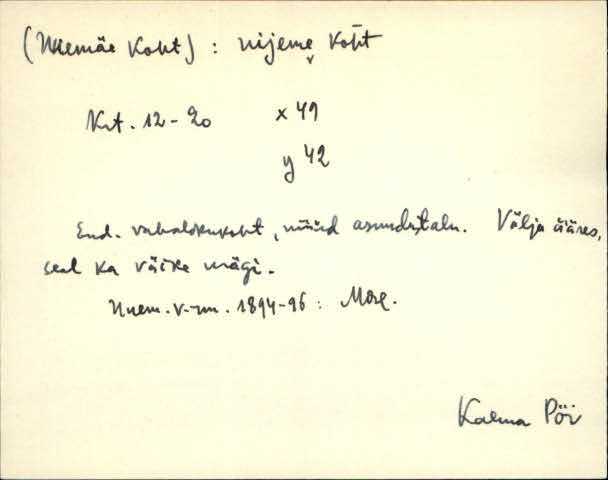 (Niemäe Koht) : nijeme̬ kot̄
Krt. 12-20 x 49
y 42
End. vabadikukoht, nüüd asundustalu. Välja ääres,
seal ka väike mägi.
v-rm. 1894-96:
Kalma Pöi